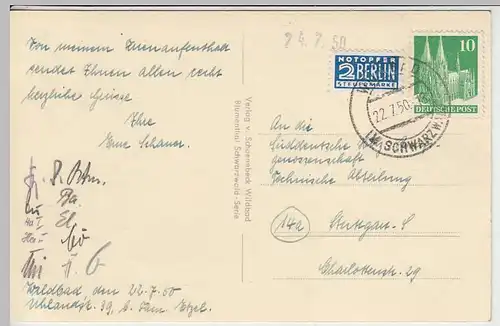 Von meinem Kuraufenthalt
sendet Ihnen allen recht
herzliche Grüsse
Ihre
Erne Schauer.
Wildbad den 22-7-50
Uhlandstr. 39, b. Fam. Etzel.
Verlag v. Schoernbeck Wildbad
Blumenthal Schwarzwald-Serie
24.7.50
NOTOPFER
2 BERLIN
STEUERMARKE
10
DEUTSCHE POST
22.7.50
SCHWARZW.
An die
Süddeutsche
genossenschaft
Technische Abteilung
(14a) Stuttgart-S
Charlottenstr. 29